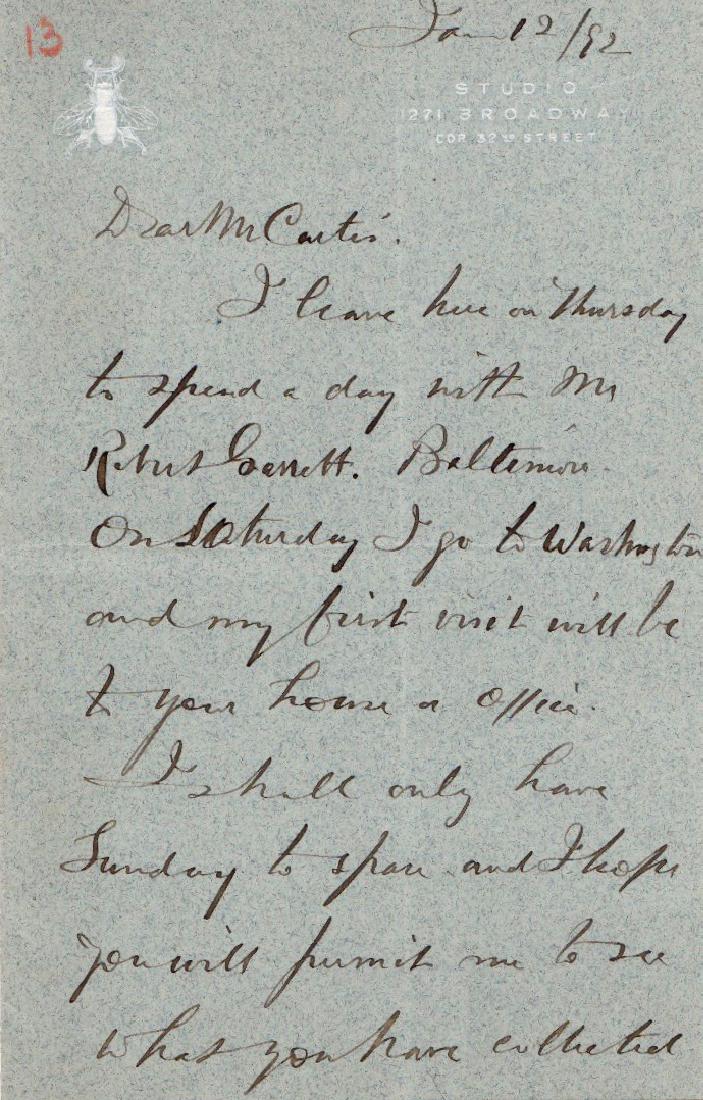 13
Jan 12/92
STUDIO
1271 BROADWAY
COR 32ND STREET
Dear Mr Curtis.
I leave here on Thursday
to spend a day with Mr
Robert Garrett. Baltimore.
On Saturday I go to Washington
and my first visit will be
to your house or office.
I shall only have
Sunday to spare and I hope
you will permit me to see
what you have collected